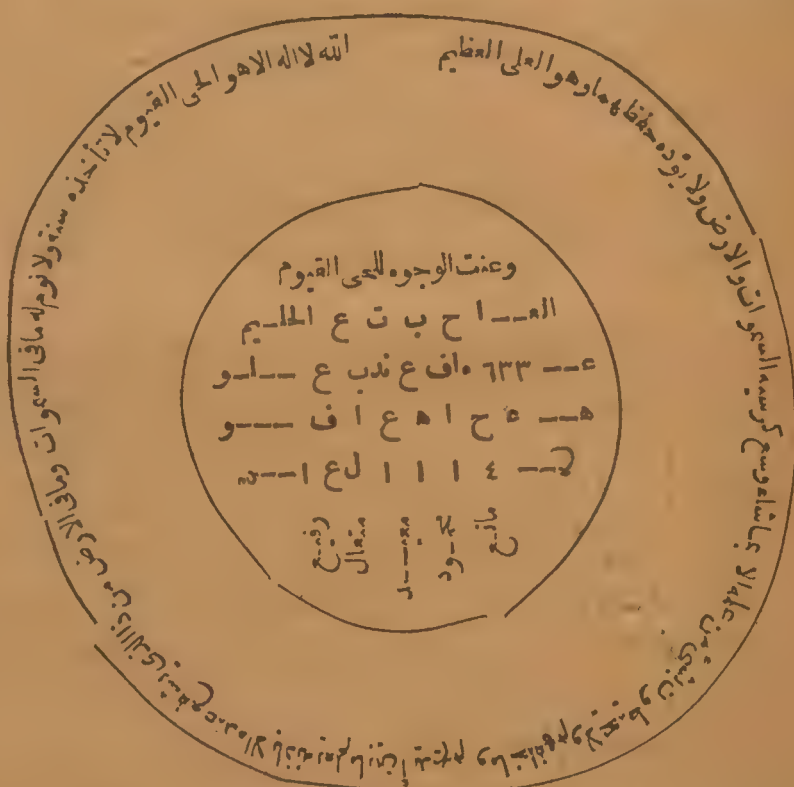 الله لا اله الا هو الحى القيوم لا تأخذه سنة ولا نوم له مافى السموات ومافى الارض من ذا الذى يشفع عنده الا باذنه يعلم مابين أيديهم وما خلفهم ولا يحيطون بشىء من علمه الا بماشاء وسع كرسيه السموات والارض ولا يؤده حفظهما وهو العلى العظيم
وعنت الوجوه للحى القيوم
العــا ح ب ت ع الحلـيم
عــ ٦٣٣ ه اف ع ندب ع ــلـو
هــ ه ح ا ه ع ا ف ــو
ح ــ ٤ ا ا ا لع ا ــس
مانـع
معيــد
متعال
رفيـع